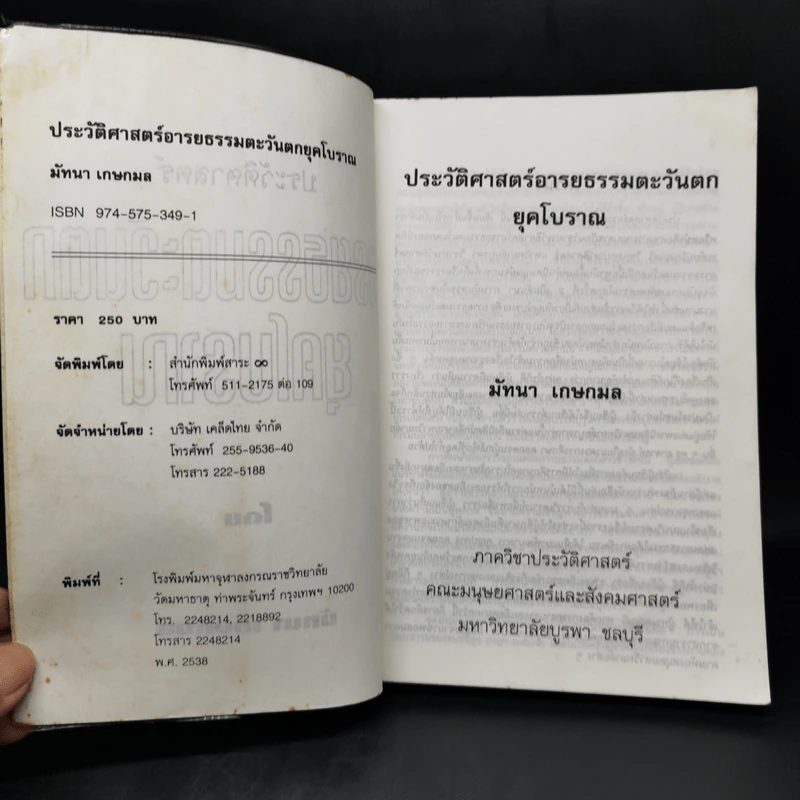 ประวัติศาสตร์อารยธรรมตะวันตกยุคโบราณ
มัทนา เกษกมล
ISBN 974-575-349-1
ราคา 250 บาท
จัดพิมพ์โดย : สำนักพิมพ์สาระ ๑๐
โทรศัพท์ 511-2175 ต่อ 109
จัดจำหน่ายโดย : บริษัท เคล็ดไทย จำกัด
โทรศัพท์ 255-9536-40
โทรสาร 222-5188
พิมพ์ที่ : โรงพิมพ์มหาจุฬาลงกรณราชวิทยาลัย
วัดมหาธาตุ ท่าพระจันทร์ กรุงเทพฯ 10200
โทร. 2248214, 2218892
โทรสาร 2248214
พ.ศ. 2538
ประวัติศาสตร์อารยธรรมตะวันตก
ยุคโบราณ
มัทนา เกษกมล
ภาควิชาประวัติศาสตร์
คณะมนุษยศาสตร์และสังคมศาสตร์
มหาวิทยาลัยบูรพา ชลบุรี